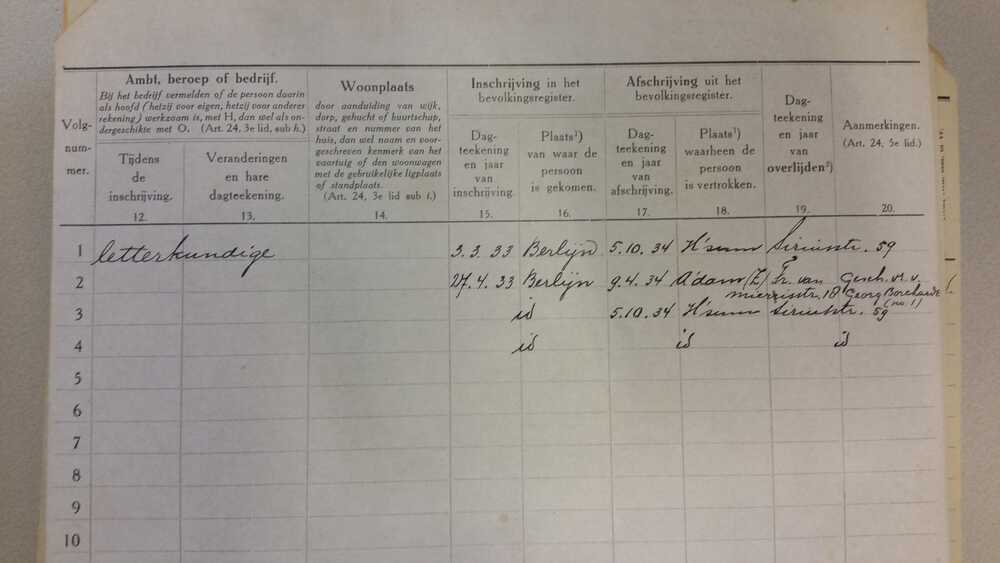 Ambt, beroep of bedrijf.
Bij het bedrijf vermelden of de persoon daarin
als hoofd (hetzij voor eigen, hetzij voor anderer
rekening) werkzaam is, met H, dan wel als on-
dergeschikte met O. (Art. 24, 3e lid, sub h.)
Woonplaats
door aanduiding van wijk,
dorp, gehucht of buurtschap,
straat en nummer van het
huis, dan wel naam en voor-
geschreven kenmerk van het
vaartuig of den woonwagen
met de gebruikelijke ligplaats
of standplaats.
(Art. 24, 3e lid sub i.)
Inschrijving in het
bevolkingsregister.
Afschrijving uit het
bevolkingsregister.
Volg-
num-
mer.
Tijdens
de
inschrijving.
Veranderingen
en hare
dagteekening.
Dag-
teekening
en jaar
van
inschrijving.
Plaats¹)
van waar de
persoon
is gekomen.
Dag-
teekening
en jaar
van
afschrijving.
Plaats¹)
waarheen de
persoon
is vertrokken.
Dag-
teekening
en jaar
van
overlijden²)
Aanmerkingen.
(Art. 24, 3e lid.)
12. 13. 14. 15. 16. 17. 18. 19. 20.
1 letterkundige 3.3.33 Berlijn 5.10.34 H'sum Siriusstr. 59
2 27.4.33 Berlijn 9.4.34 A'dam (Z) Fr. van Gesch. vr. v.
mierisstr. 18 Georg Borchardt
(no. 1)
3 id 5.10.34 H'sum Siriusstr. 59
4 id id id
5
6
7
8
9
10